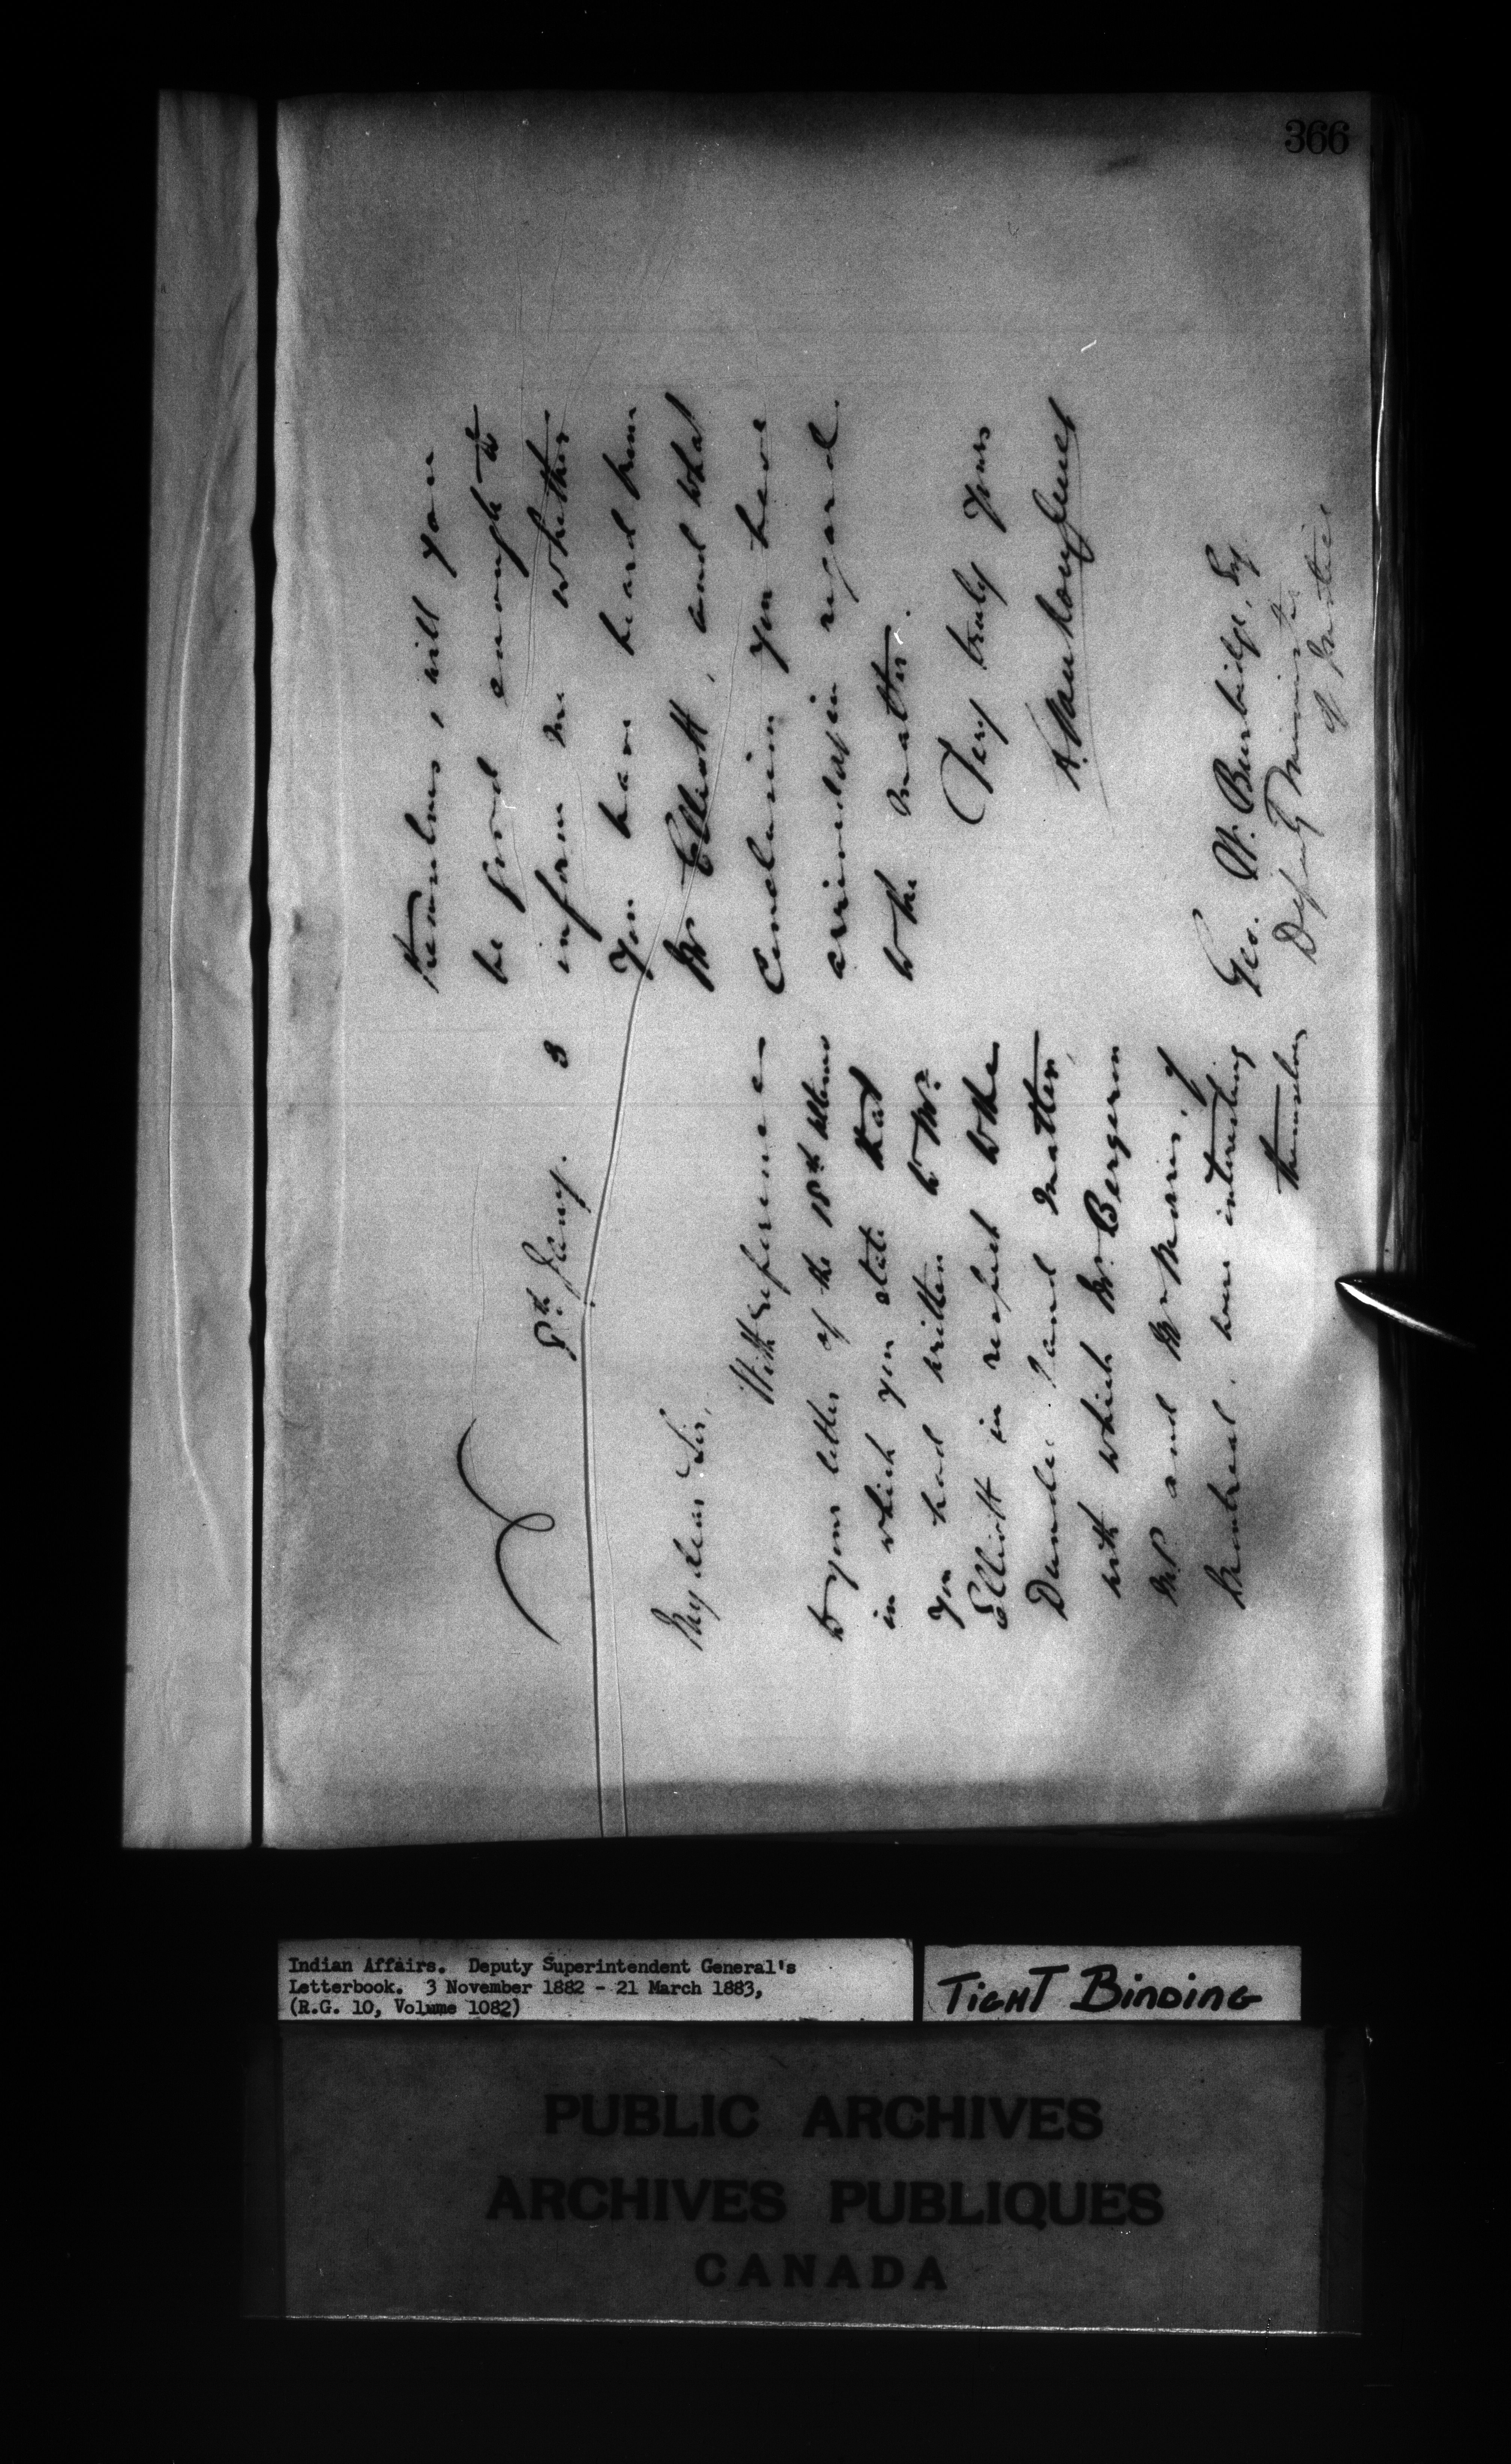 366
8th Jany. 3
My dear Sir,
With reference
to your letter of the 18th ultimo
in which you state that
you had written to Mr.
Elliott in respect to the
Dundee Land matter,
with which Mr. Bergeron
M.P. and Mr. Morris, of
Montreal, were interesting
themselves
themselves, will you
be good enough to
inform me whether
you have heard from
Mr Elliott, and what
conclusion you have
arrived at in regard
to the matter.
Very truly yours
L. Vankoughnet
Geo. W. Burbidge, Esq
Deputy Minister
of Justice
Indian Affairs. Deputy Superintendent General's
Letterbook. 3 November 1882 - 21 March 1883,
(R.G. 10, Volume 1082)
TIGHT BINDING
PUBLIC ARCHIVES
ARCHIVES PUBLIQUES
CANADA